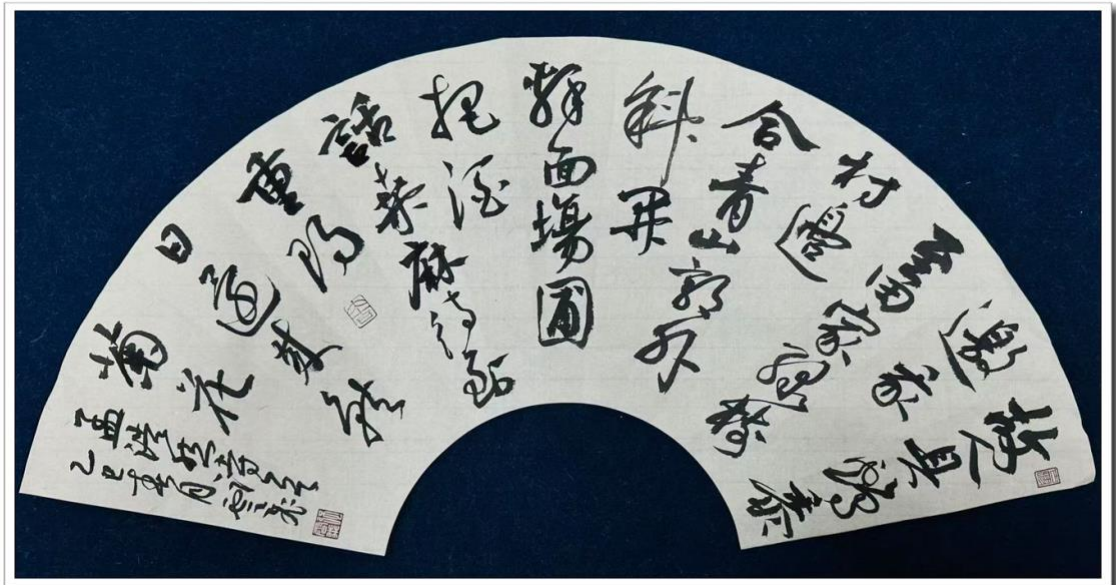 故人具鷄黍
邀我
至田家緑樹
村邊
合青山郭外
斜開
軒面場圃
把酒
話桑麻待到
重陽
日還來就
菊花
孟浩然
乙巳